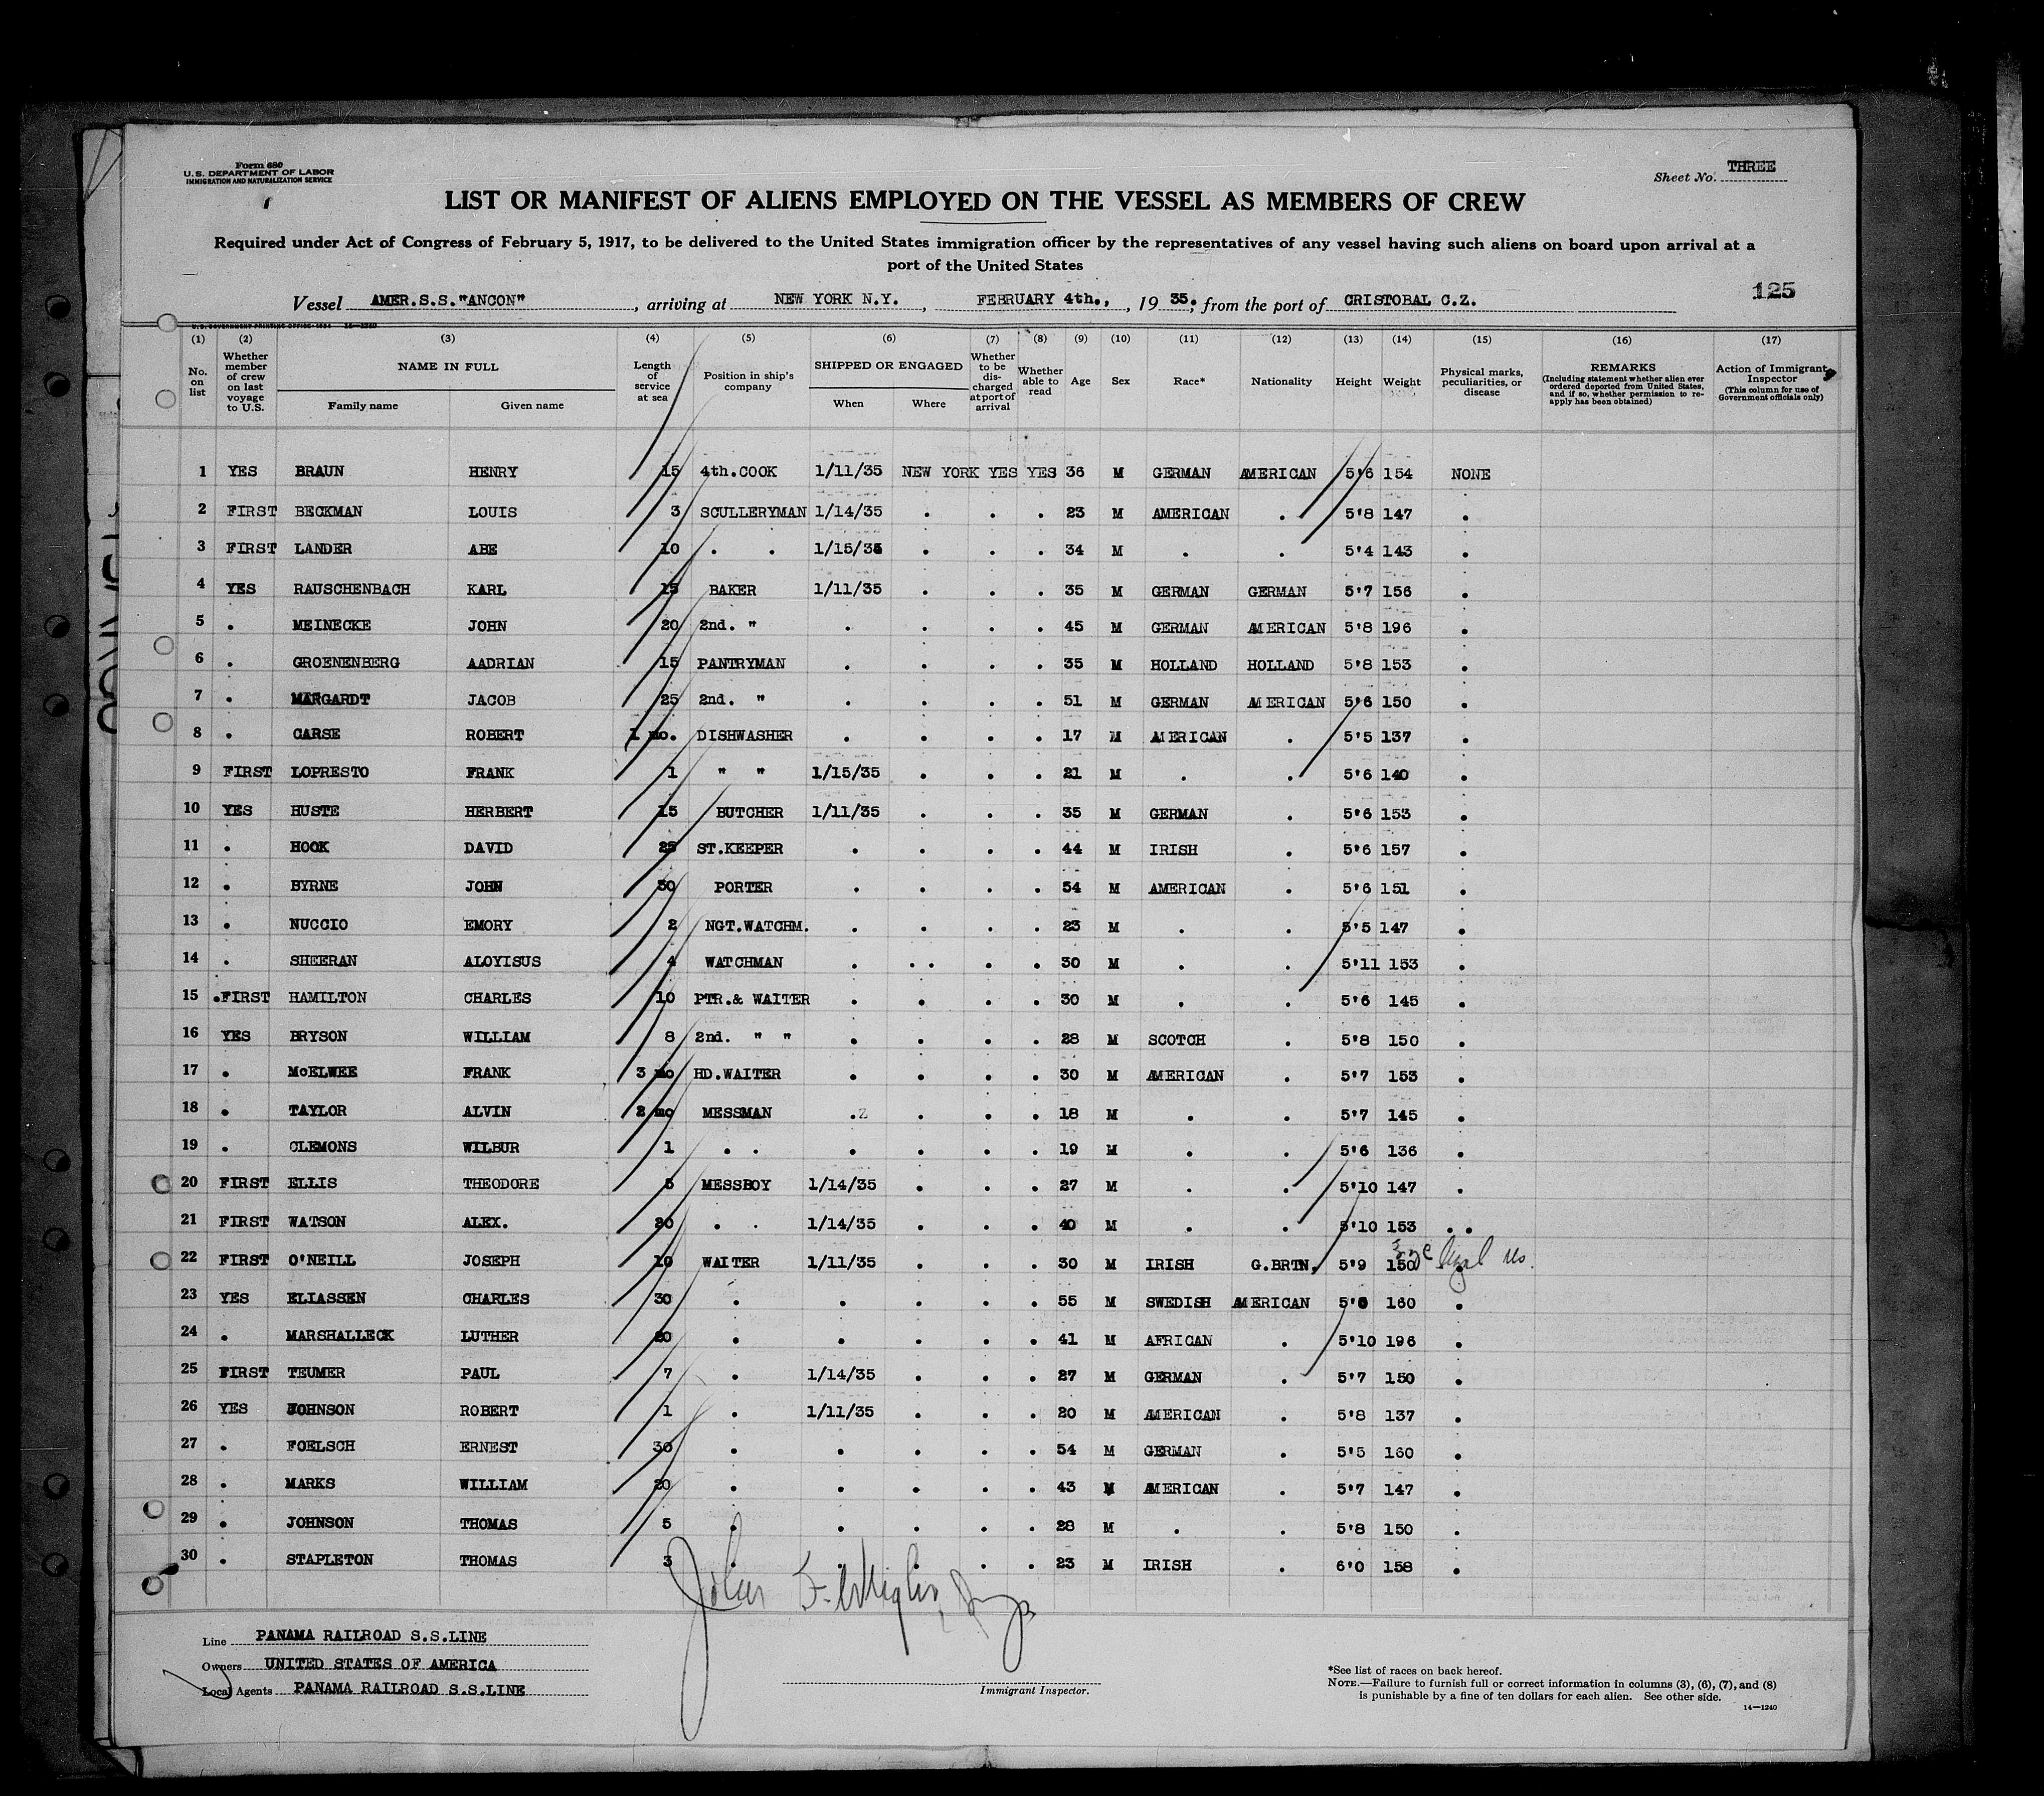 Form 680
U.S. DEPARTMENT OF LABOR
IMMIGRATION AND NATURALIZATION SERVICE
Sheet No. THREE
LIST OR MANIFEST OF ALIENS EMPLOYED ON THE VESSEL AS MEMBERS OF CREW
Required under Act of Congress of February 5, 1917, to be delivered to the United States immigration officer by the representatives of any vessel having such aliens on board upon arrival at a
port of the United States
125
Vessel AMER.S.S."ANCON", arriving at NEW YORK N.Y., FEBRUARY 4th., , 19 35. , from the port of CRISTOBAL C.Z.
U.S. GOVERNMENT PRINTING OFFICE: 1934 14—1240
(1) (2) (3) (4) (5) (6) (7) (8) (9) (10) (11) (12) (13) (14) (15) (16) (17)
No. on list Whether member of crew on last voyage to U.S. NAME IN FULL Family name Given name Length of service at sea Position in ship's company SHIPPED OR ENGAGED When Where Whether to be discharged at port of arrival Whether able to read Age Sex Race* Nationality Height Weight Physical marks, peculiarities, or disease REMARKS (Including statement whether alien ever ordered deported from United States, and if so, whether permission to reapply has been obtained) Action of Immigrant Inspector (This column for use of Government officials only)
1 YES BRAUN HENRY 15 4th.COOK 1/11/35 NEW YORK YES YES 36 M GERMAN AMERICAN 5'6 154 NONE
2 FIRST BECKMAN LOUIS 3 SCULLERYMAN 1/14/35 . . . 23 M AMERICAN . 5'8 147 .
3 FIRST LANDER ABE 10 . . 1/15/35 . . . 34 M . . 5'4 143 .
4 YES RAUSCHENBACH KARL 15 BAKER 1/11/35 . . . 35 M GERMAN GERMAN 5'7 156 .
5 . MEINECKE JOHN 20 2nd. " . . . . 45 M GERMAN AMERICAN 5'8 196 .
6 . GROENENBERG AADRIAN 15 PANTRYMAN . . . . 35 M HOLLAND HOLLAND 5'8 153 .
7 . MARGARDT JACOB 25 2nd. " . . . . 51 M GERMAN AMERICAN 5'6 150 .
8 . CARSE ROBERT 1 mo. DISHWASHER . . . . 17 M AMERICAN . 5'5 137 .
9 FIRST LOPRESTO FRANK 1 " " 1/15/35 . . . 21 M . . 5'6 140 .
10 YES HUSTE HERBERT 15 BUTCHER 1/11/35 . . . 35 M GERMAN . 5'6 153 .
11 . HOOK DAVID 25 ST.KEEPER . . . . 44 M IRISH . 5'6 157 .
12 . BYRNE JOHN 30 PORTER . . . . 54 M AMERICAN . 5'6 151 .
13 . NUCCIO EMORY 2 NGT.WATCHM. . . . . 23 M . . 5'5 147 .
14 . SHEERAN ALOYISUS 4 WATCHMAN . . . . . 30 M . . 5'11 153 .
15 .FIRST HAMILTON CHARLES 10 PTR.& WAITER . . . . 30 M . . 5'6 145 .
16 YES BRYSON WILLIAM 8 2nd. " " . . . . 28 M SCOTCH . 5'8 150 .
17 . McELWEE FRANK 3 mo HD.WAITER . . . . 30 M AMERICAN . 5'7 153 .
18 . TAYLOR ALVIN 2 mo MESSMAN .z . . . 18 M . . 5'7 145 .
19 . CLEMONS WILBUR 1 . . . . . . 19 M . . 5'6 136 .
20 FIRST ELLIS THEODORE 5 MESSBOY 1/14/35 . . . 27 M . . 5'10 147 .
21 FIRST WATSON ALEX. 20 . . 1/14/35 . . . 40 M . . 5'10 153 . .
22 FIRST O'NEILL JOSEPH 10 WAITER 1/11/35 . . . 30 M IRISH G.BRTN. 5'9 150 . legal res.
23 YES ELIASSEN CHARLES 30 . . . . . 55 M SWEDISH AMERICAN 5'6 160 .
24 . MARSHALLECK LUTHER 20 . . . . . 41 M AFRICAN . 5'10 196 .
25 FIRST TEUMER PAUL 7 . 1/14/35 . . . 27 M GERMAN . 5'7 150 .
26 YES JOHNSON ROBERT 1 . 1/11/35 . . . 20 M AMERICAN . 5'8 137 .
27 . FOELSCH ERNEST 30 . . . . . 54 M GERMAN . 5'5 160 .
28 . MARKS WILLIAM 20 . . . . . 43 M AMERICAN . 5'7 147 .
29 . JOHNSON THOMAS 5 . . . . . 28 M . . 5'8 150 .
30 . STAPLETON THOMAS 3 . . . . . 23 M IRISH . 6'0 158 .
Line PANAMA RAILROAD S.S.LINE
Owners UNITED STATES OF AMERICA
Local Agents PANAMA RAILROAD S.S.LINE
Immigrant Inspector.
*See list of races on back hereof.
NOTE.—Failure to furnish full or correct information in columns (3), (6), (7), and (8)
is punishable by a fine of ten dollars for each alien. See other side.
14—1240